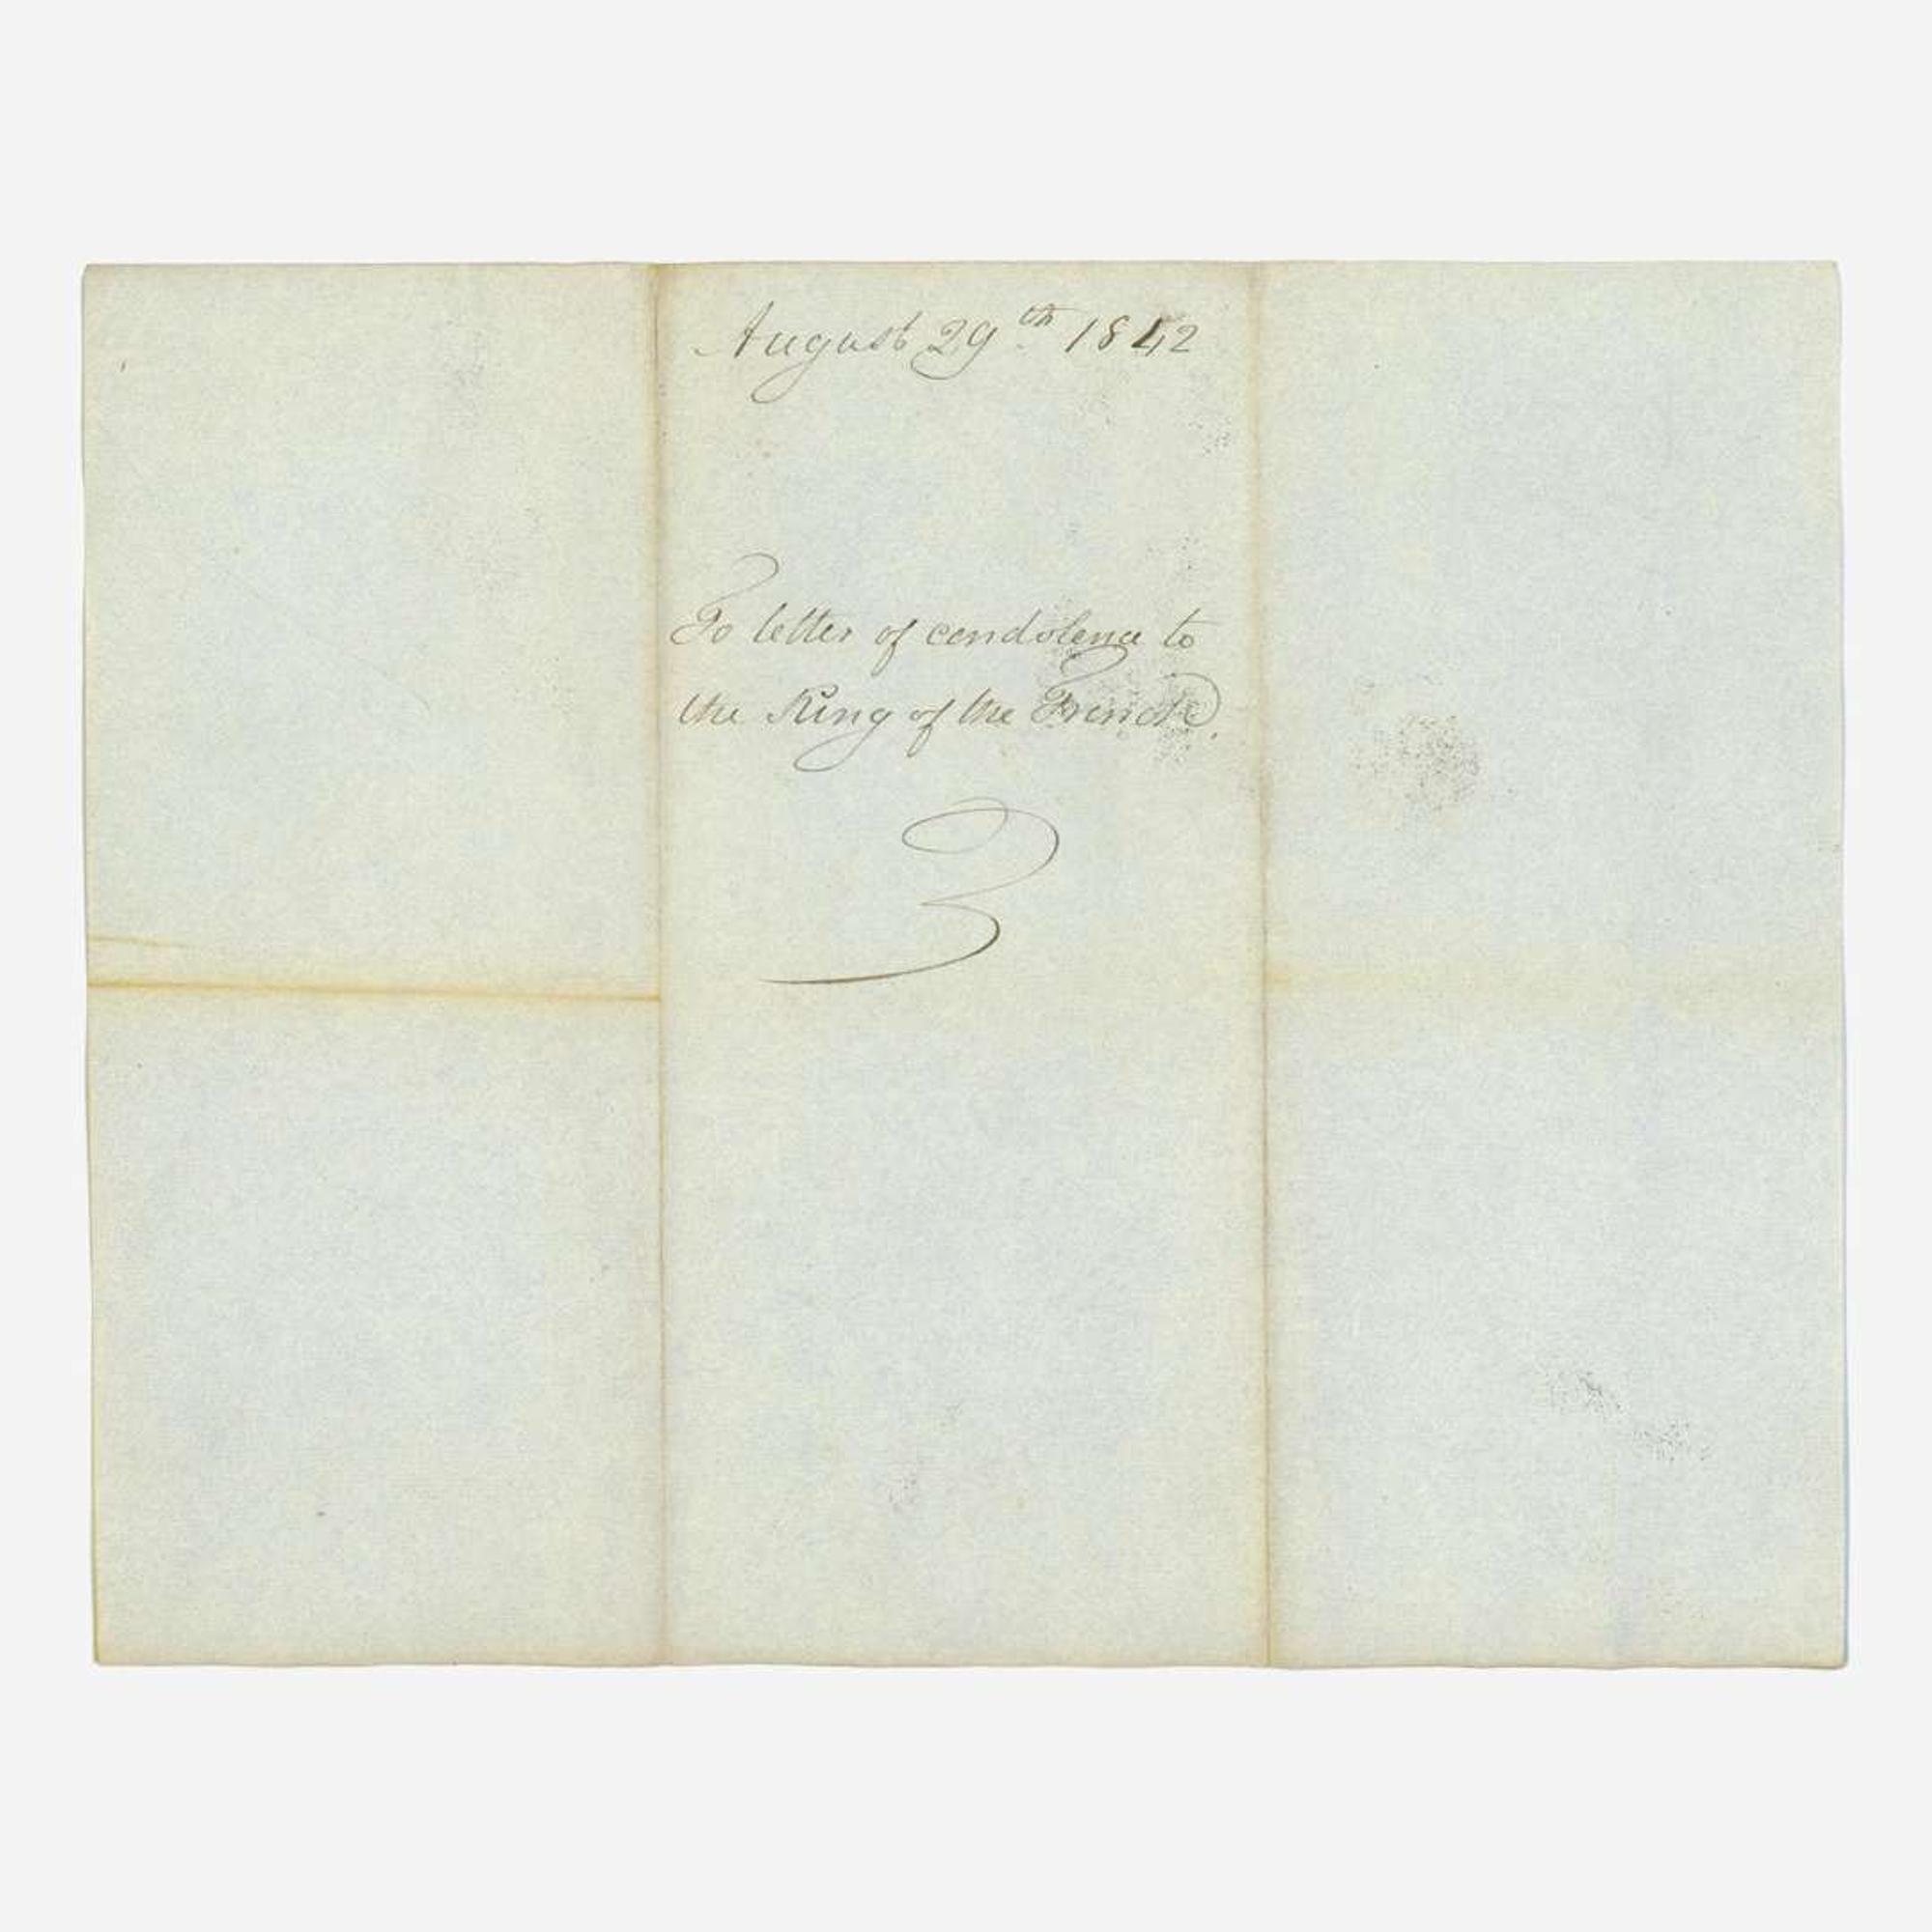 August 29th 1842
To letter of condolence to
the King of the French.